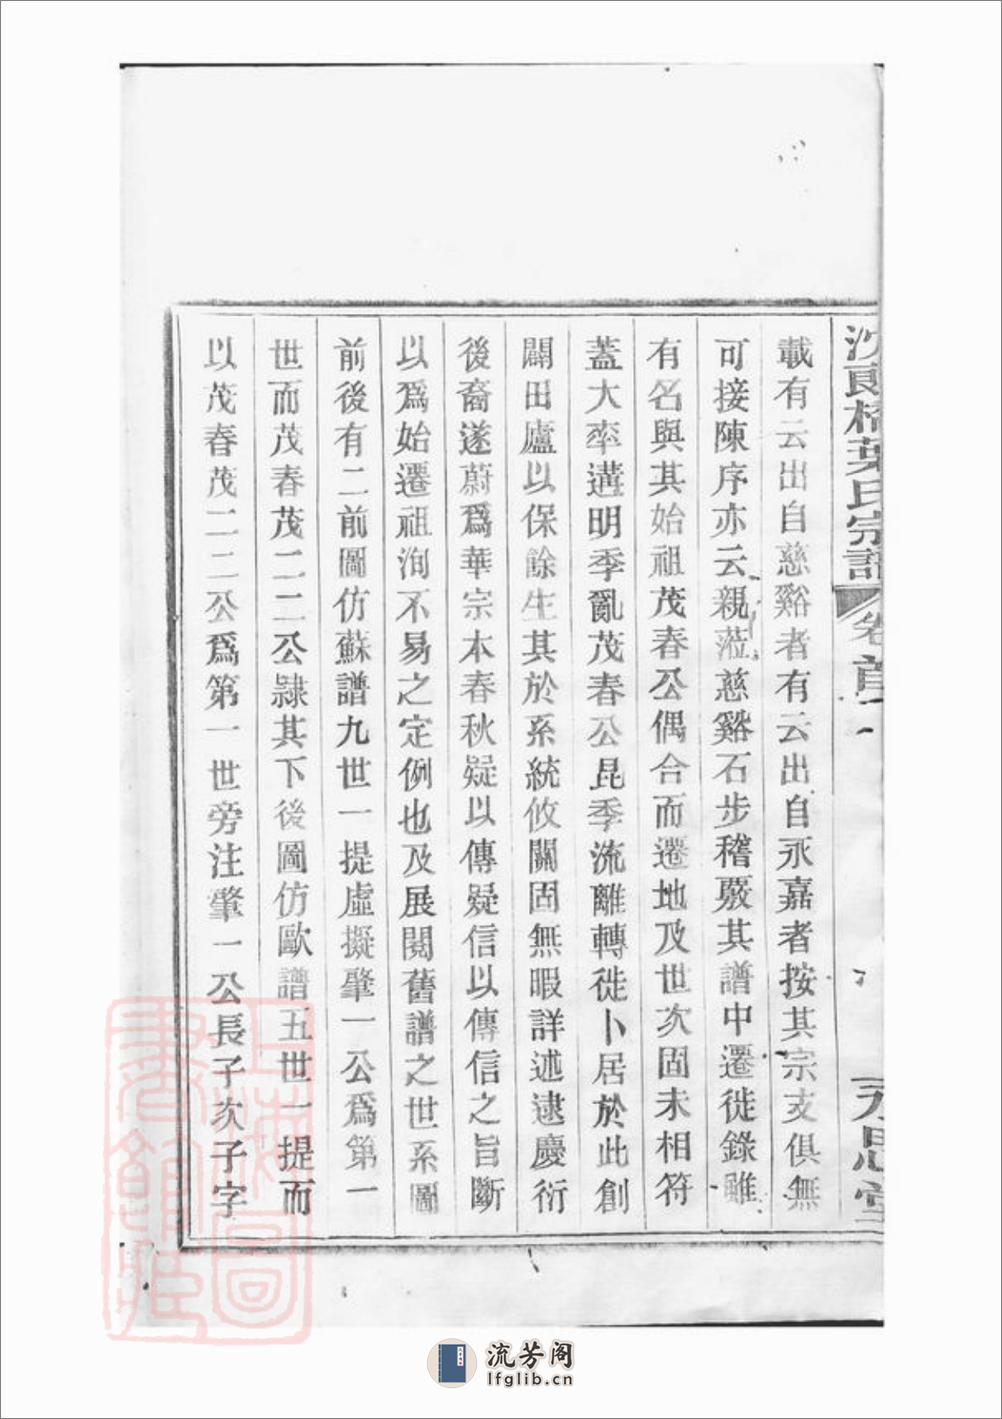 沙頭橋葉氏宗譜 卷首 永思堂
載有云出自慈谿者有云出自永嘉者按其宗支俱無
可接陳序亦云親蒞慈谿石步稽覈其譜中遷徙錄雖
有名與其始祖茂春公偶合而遷地及世次固未相符
蓋大率遘明季亂茂春公昆季流離轉徙卜居於此創
闢田廬以保餘生其於系統攸關固無暇詳述逮慶衍
後裔遂蔚爲華宗本春秋疑以傳疑信以傳信之旨斷
以爲始遷祖洵不易之定例也及展閱舊譜之世系圖
前後有二前圖仿蘇譜九世一提虛擬肇一公爲第一
世而茂春茂二二公隸其下後圖仿歐譜五世一提而
以茂春茂二二公爲第一世旁注肇一公長子次子字
上海圖書館藏
流芳阁
lfglib.cn